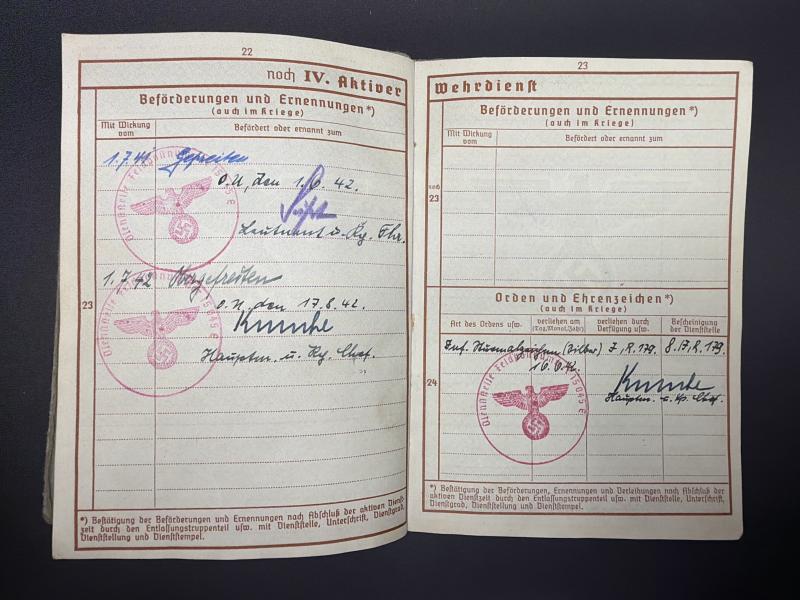 22
noch IV. Aktiver
Beförderungen und Ernennungen*)
(auch im Kriege)
Mit Wirkung vom
Befördert oder ernannt zum
1.7.41 Gefreiten
O.U., den 1.6.42.
Leutnant u. Kp. Fhr.
1.7.42 Obergefreiten
O.U. den 17.8.42.
Hauptm. u. Kp. Chef.
23
Dienststelle Feldpostnummer 15045 E
Dienststelle Feldpostnummer 15045 E
*) Bestätigung der Beförderungen und Ernennungen nach Abschluß der aktiven Dienst-
zeit durch den Entlassungstruppenteil usw. mit Dienststelle, Unterschrift, Dienstgrad,
Dienststellung und Dienststempel.
23
Wehrdienst
Beförderungen und Ernennungen*)
(auch im Kriege)
Mit Wirkung vom
Befördert oder ernannt zum
noch
23
Orden und Ehrenzeichen*)
(auch im Kriege)
Art des Ordens usw.
verliehen am (Tag, Monat, Jahr)
verliehen durch Verfügung usw.
Bescheinigung der Dienststelle
Inf. Sturmabzeichen (Silber) J.R.179. 8.J.R.179.
Hauptm. u. Kp. Chef.
24
Dienststelle Feldpostnummer 15045 E
*) Bestätigung der Beförderungen, Ernennungen und Verleihungen nach Abschluß der
aktiven Dienstzeit durch den Entlassungstruppenteil usw. mit Dienststelle, Unterschrift,
Dienstgrad, Dienststellung und Dienststempel.